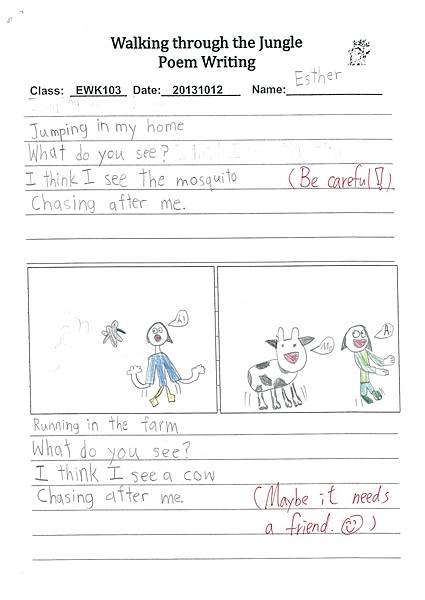 Walking through the Jungle
Poem Writing
Esther
Class: EWK103 Date: 20131012 Name:
Jumping in my home
What do you see?
I think I see the mosquito (Be careful!)
Chasing after me.
A
Running in the farm
What do you see?
I think I see a cow
Chasing after me. (Maybe it needs
a friend. )